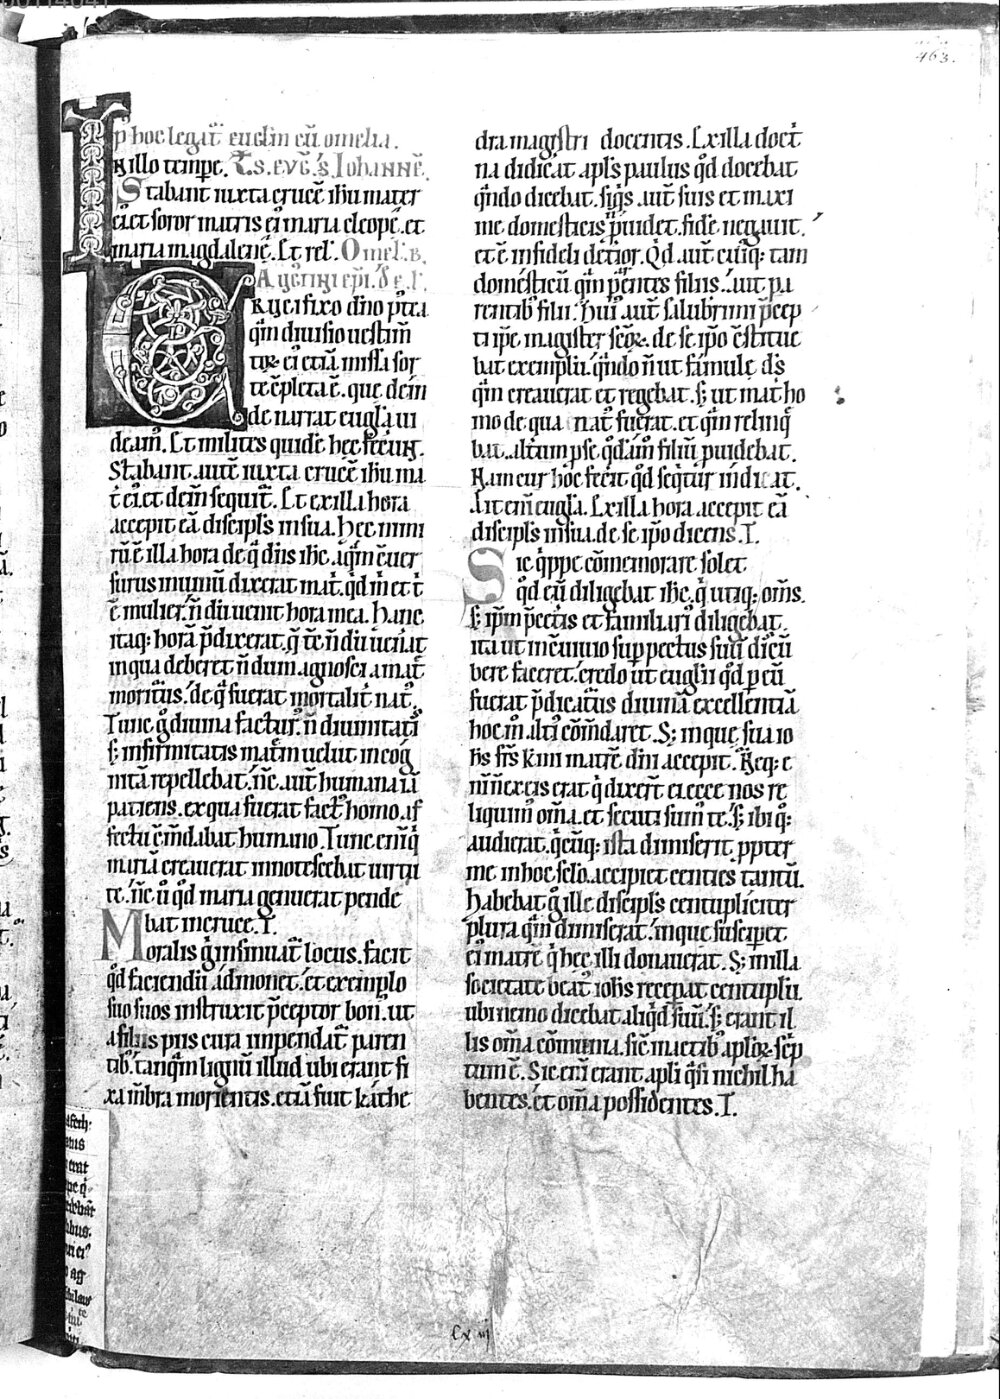 463.
p̄ hoc legat̄ eugl̄m cū omelia.
IN illo tempr̄e. s̄. evḡ. s̄. Iohannē.
Stabant iuxta crucē ihū mater
ei. et soror matris ei maria cleope. et
maria magdalene. Et rel. Omel. b.
Augustini ep̄i. de e. l.
CRucifixo dn̄o p̄ta
q̄m diuisio uestim̄
torū ei etiā missa sor
te c̄pleta ē. que dein
de narrat eugl̄a ui
deam. Et milites quidē hec fecer̄.
Stabant. aut̄ iuxta crucē ihū ma
t̄ ei. et dein̄ sequit̄. Et ex illa hora
accepit eā discipl̄s in sua. Hec nim̄
rū ē illa hora de q̄ dn̄s ihc̄. aq̄m cōuer
surus in uinū dixerat mat̄. qd̄ m̄ et t̄
ē mulier. n̄ dū uenit hora mea. Hanc
itaq: horā p̄dixerat. q̄ tc̄ n̄ dū uen̄at
in qua deberet n̄ dum agnosci a mat̄
moriturus. de q̄ fuerat mortalit̄ nat̄.
Tunc g̊ diuina factur̄. n̄ diuinitatis
s; infirmitatis mat̄m uelut incog
nitā repellebat. nc̄. aut̄ humana iā
patiens. ex qua fuerat fact̄ homo. af
fectu c̄m̄dabat humano. Tunc eni q̄
mariā creauerat innotescebat uirtu
te. nc̄ ů qd̄ maria genuerat pende
bat in cruce. I.
Moralis g̊ insinuat̄ locus. facit
qd̄ faciendū admonet. et exemplo
suo suos instruxit p̄ceptor bon̄. ut
a filiis piis cura impendat̄ paren
tib. tanq̄m lignū illud ubi erant fi
xa mēbra morientis. etiā fuit kathe
dra magistri docentis. Ex illa doct̄
na didic̄at apl̄s paulus qd̄ docebat
q̄ndo dicebat. siq̄s aut̄ suis et maxi
me domesticis p̄uidet. fidē negauit.
et ē infideli det̄ior. Qd̄ aut̄ cuiq: tam
domesticū q̄m p̄entes filiis. aut pa
rentib filii. Hui. aut̄ saluberrimi p̄cep
ti ip̄e magister scōr̄. de se ip̄o c̄stitue
bat exemplū. q̄ndo n̄ ut famulę ds̄
q̄m creauerat et regebat. s; ut mat̄ ho
mo de qua nat̄ fuerat. et q̄m relinq̄
bat. alt̄um p̄ se q̄dam filiū p̄uidebat.
Nam cur hoc fecit qd̄ seq̄tur indicat.
Ait eni eugl̄a. Ex illa hora accepit eā
discipl̄s in sua. de se ip̄o dicens. I.
Sic q̄ppe cōmemorare solet
qd̄ eū diligebat ihc̄. q̄ utiq: om̄s.
s; ip̄m p̄ cet̄is et familiari diligebat.
ita ut in cōuiuio sup̄ pectus suū discū
bere faceret. credo ut eugl̄ii qd̄ p̄ eū
fuerat p̄dicaturus diuinā excellentiā
hoc m̄ alti cōm̄daret. S; in que sua io
hs̄ frs̄ kmi matrē dn̄i accepit. Neq: e
ni n̄ ex eis erat q̄ dixer̄t ei. ecce nos re
liquim̄ om̄a. et secuti sum̄ te. s; ibi q:
audierat. q̄cūq: ista dimiserit pp̄ter
me in hoc sc̄lo. accipiet centies tantū.
Habebat g̊ ille discipl̄s centupliciter
plura q̄m dimiserat. in que susciperet
ei matrē q̄ hec illi donauerat. S; in illa
societate beat̄ iohs̄ recep̄at centuplū.
ubi nemo dicebat aliqd̄ suū. s; erant il
lis om̄a cōmunia. sic̄ in actib aplōr̄. scp̄
tum ē. Sic eni erant apl̄i q̄si nichil ha
bentes. et om̄a possidentes. I.
Cxiij